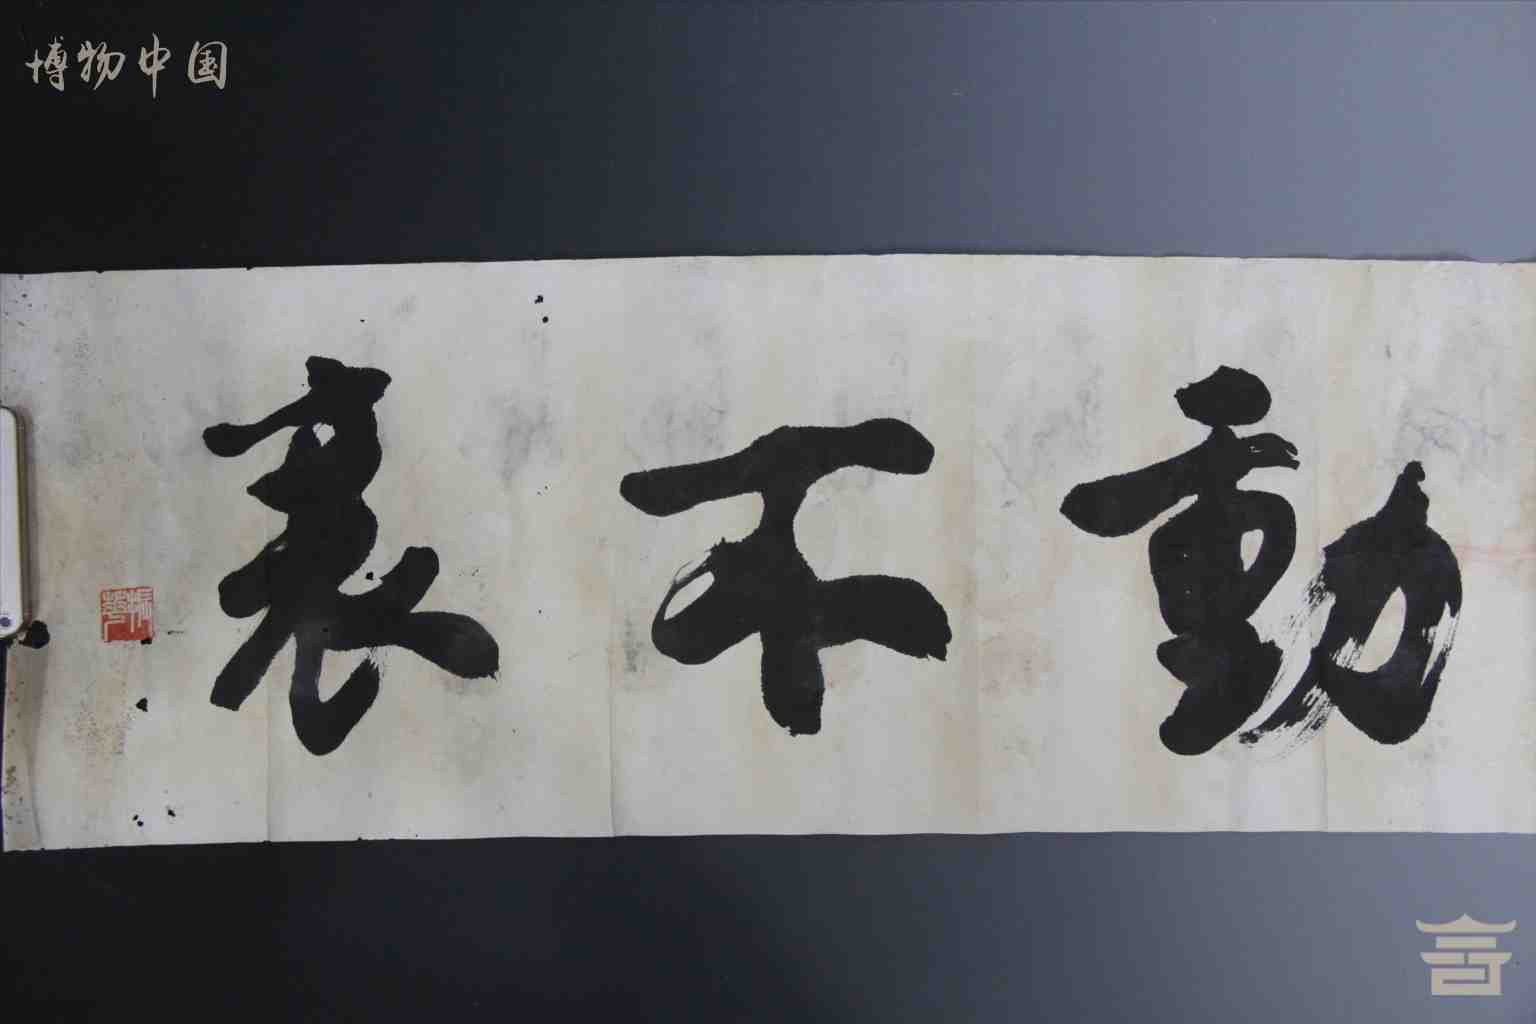 博物中国
動不衰